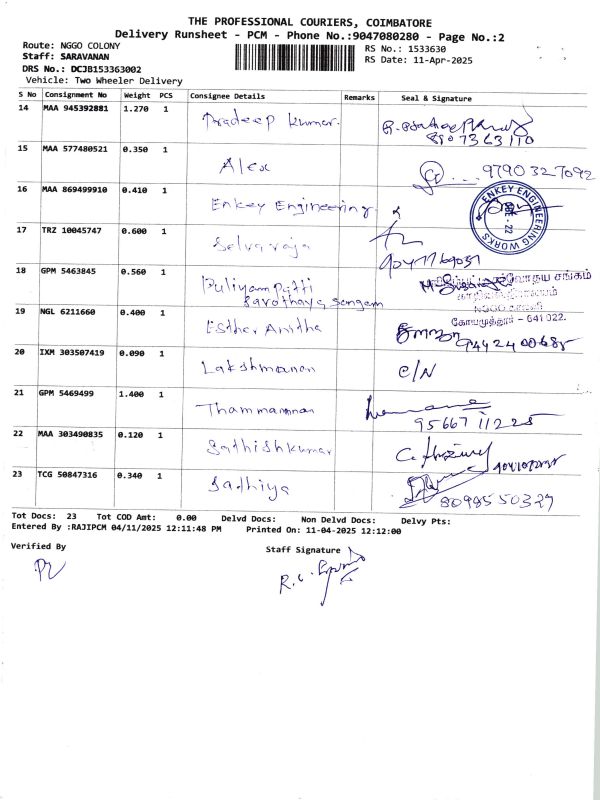 THE PROFESSIONAL COURIERS, COIMBATORE
Delivery Runsheet - PCM - Phone No.:9047080280 - Page No.:2
Route: NGGO COLONY
Staff: SARAVANAN
DRS No.: DCJB153363002
Vehicle: Two Wheeler Delivery
RS No.: 1533630
RS Date: 11-Apr-2025
S No Consignment No Weight PCS Consignee Details Remarks Seal & Signature
14 MAA 945392881 1.270 1 Pradeep Kumar.
15 MAA 577480521 0.350 1 Alex 9790327092
16 MAA 869499910 0.410 1 Enkey Engineering
ENKEY ENGINEERING WORKS
17 TRZ 10045747 0.600 1 Selvaraja
18 GPM 5463845 0.560 1 Puliyampatti
Sarvothaya Sangam
NGGO
கோயமுத்தூர் - 641 022.
19 NGL 6211660 0.400 1 Esther Anitha
20 IXM 303507419 0.090 1 Lakshmanan C/N
21 GPM 5469499 1.400 1 Thammannan
95667 11225
22 MAA 303490835 0.120 1 Sathishkumar
23 TCG 50847316 0.340 1 Sathiya
80985 50327
Tot Docs: 23 Tot COD Amt: 0.00 Delvd Docs: Non Delvd Docs: Delvy Pts:
Entered By :RAJIPCM 04/11/2025 12:11:48 PM Printed On: 11-04-2025 12:12:00
Verified By
Staff Signature